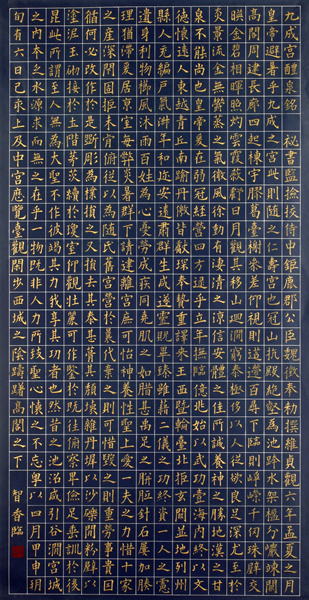 九成宮醴泉銘 秘書監檢校侍中鉅鹿郡公臣魏徵奉勅撰維貞觀六年孟夏之月
皇帝避暑乎九成之宮此則隨之仁壽宮也冠山抗殿絕壑為池跨水架楹分巖竦闕
高閣周建長廊四起棟宇膠葛臺榭參差仰視則迢遰百尋下臨則崢嶸千仞珠璧交
暎金碧相暉照灼雲霞蔽虧日月觀其移山迴澗窮泰極侈以人從欲良足深尤至於
炎景流金無鬱蒸之氣微風徐動有淒清之涼信安體之佳所誠養神之勝地漢之甘
泉不能尚也皇帝爰在弱冠經營四方逮乎立年撫臨億兆始以武功壹海內終以文
德懷遠人東越青丘南踰丹徼皆獻琛奉贄重譯來王西暨輪臺北拒玄闕並地列州
縣人充編戶氣淑年和邇安遠肅群生咸遂靈貺畢臻雖藉二儀之功終資一人之慮
遺身利物櫛風沐雨百姓為心憂勞成疾同堯肌之如腊甚禹足之胼胝針石屢加腠
理猶滯爰居京室每弊炎暑群下請建離宮庶可怡神養性聖上愛一夫之力惜十家
之產深閉固拒未肯俯從以為隨氏舊宮營於曩代棄之則可惜毀之則重勞事貴因
循何必改作於是斲彫為樸損之又損去其泰甚葺其頹壞雜丹墀以沙礫間粉壁以
塗泥玉砌接於土階茅茨續於瓊室仰觀壯麗可作鑒於既往俯察卑儉足垂訓於後
昆此所謂至人無為大聖不作彼竭其力我享其功者也然昔之池沼咸引谷澗宮城
之內本乏水源求而無之在乎一物既非人力所致聖心懷之不忘粵以四月甲申朔
旬有六日己亥上及中宮歷覽臺觀閑步西城之陰躊躇高閣之下 智香臨